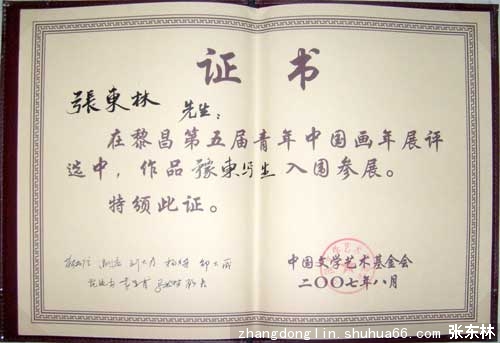 证书
張東林 先生：
在黎昌第五届青年中国画年展评
选中，作品豫東写生入围参展。
特颁此证。
中国文学艺术基金会
二〇〇七年八月
zhangdonglin.shuhua66.com 张东林